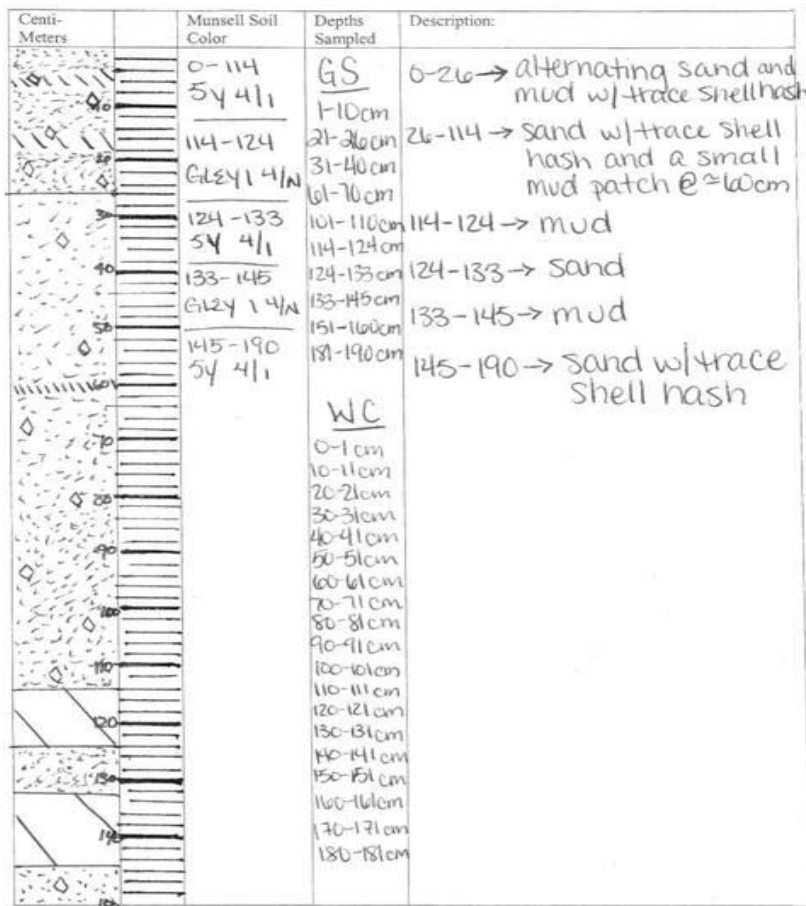 Centi-
Meters
Munsell Soil
Color
Depths
Sampled
Description:
10
20
30
40
50
60
70
80
90
100
110
120
130
140
150
0-114
5Y 4/1
114-124
GLEY 1 4/N
124-133
5Y 4/1
133-145
GLEY 1 4/N
145-190
5Y 4/1
GS
1-10cm
21-26cm
31-40cm
61-70cm
101-110cm
114-124cm
124-133cm
133-145cm
151-160cm
181-190cm
WC
0-1cm
10-11cm
20-21cm
30-31cm
40-41cm
50-51cm
60-61cm
70-71cm
80-81cm
90-91cm
100-101cm
110-111cm
120-121cm
130-131cm
140-141cm
150-151cm
160-161cm
170-171cm
180-181cm
0-26→ alternating sand and
mud w/trace shell hash
26-114→ sand w/trace shell
hash and a small
mud patch @≈60cm
114-124→ mud
124-133→ sand
133-145→ mud
145-190→ sand w/trace
shell hash